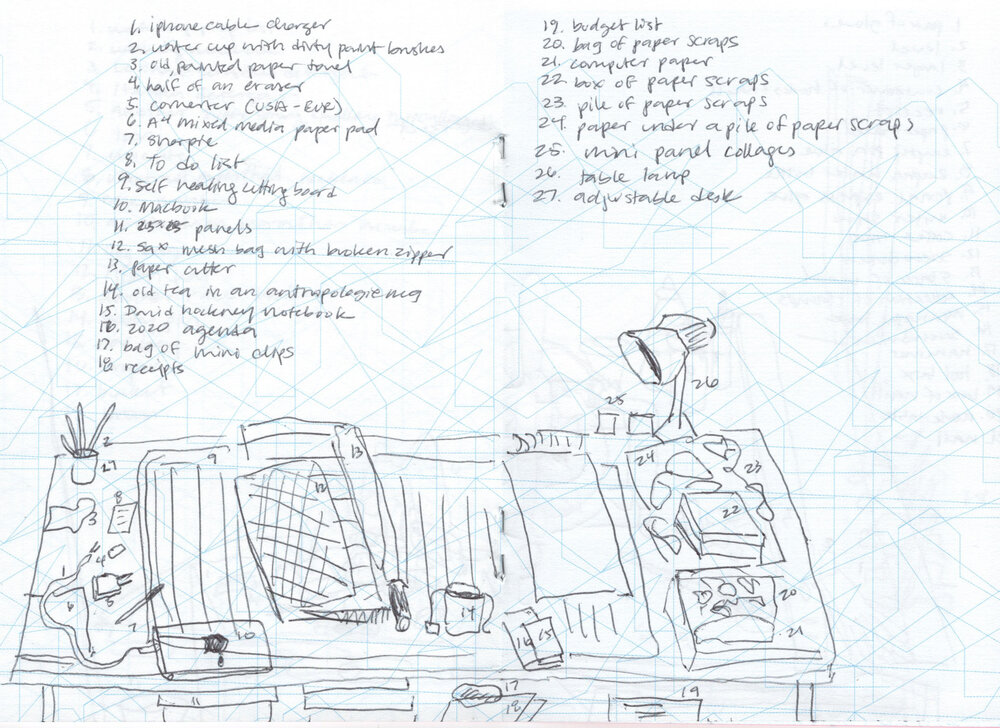 1. iphone cable charger
2. water cup with dirty paint brushes
3. old, painted paper towel
4. half of an eraser
5. converter (USA - EUR)
6. A4 mixed media paper pad
7. Sharpie
8. To do list
9. self healing cutting board
10. Macbook
11. panels
12. Sax mesh bag with broken zipper
13. paper cutter
14. old tea in an antropologie mug
15. David hockney notebook
16. 2020 agenda
17. bag of mini clips
18. receipts
19. budget list
20. bag of paper scraps
21. computer paper
22. box of paper scraps
23. pile of paper scraps
24. paper under a pile of paper scraps
25. mini panel collages
26. table lamp
27. adjustable desk
26
25
2
27
9
13
24
23
8
3
12
22
4
1
5
6
7
14
20
10
16
15
21
17
18
19
11